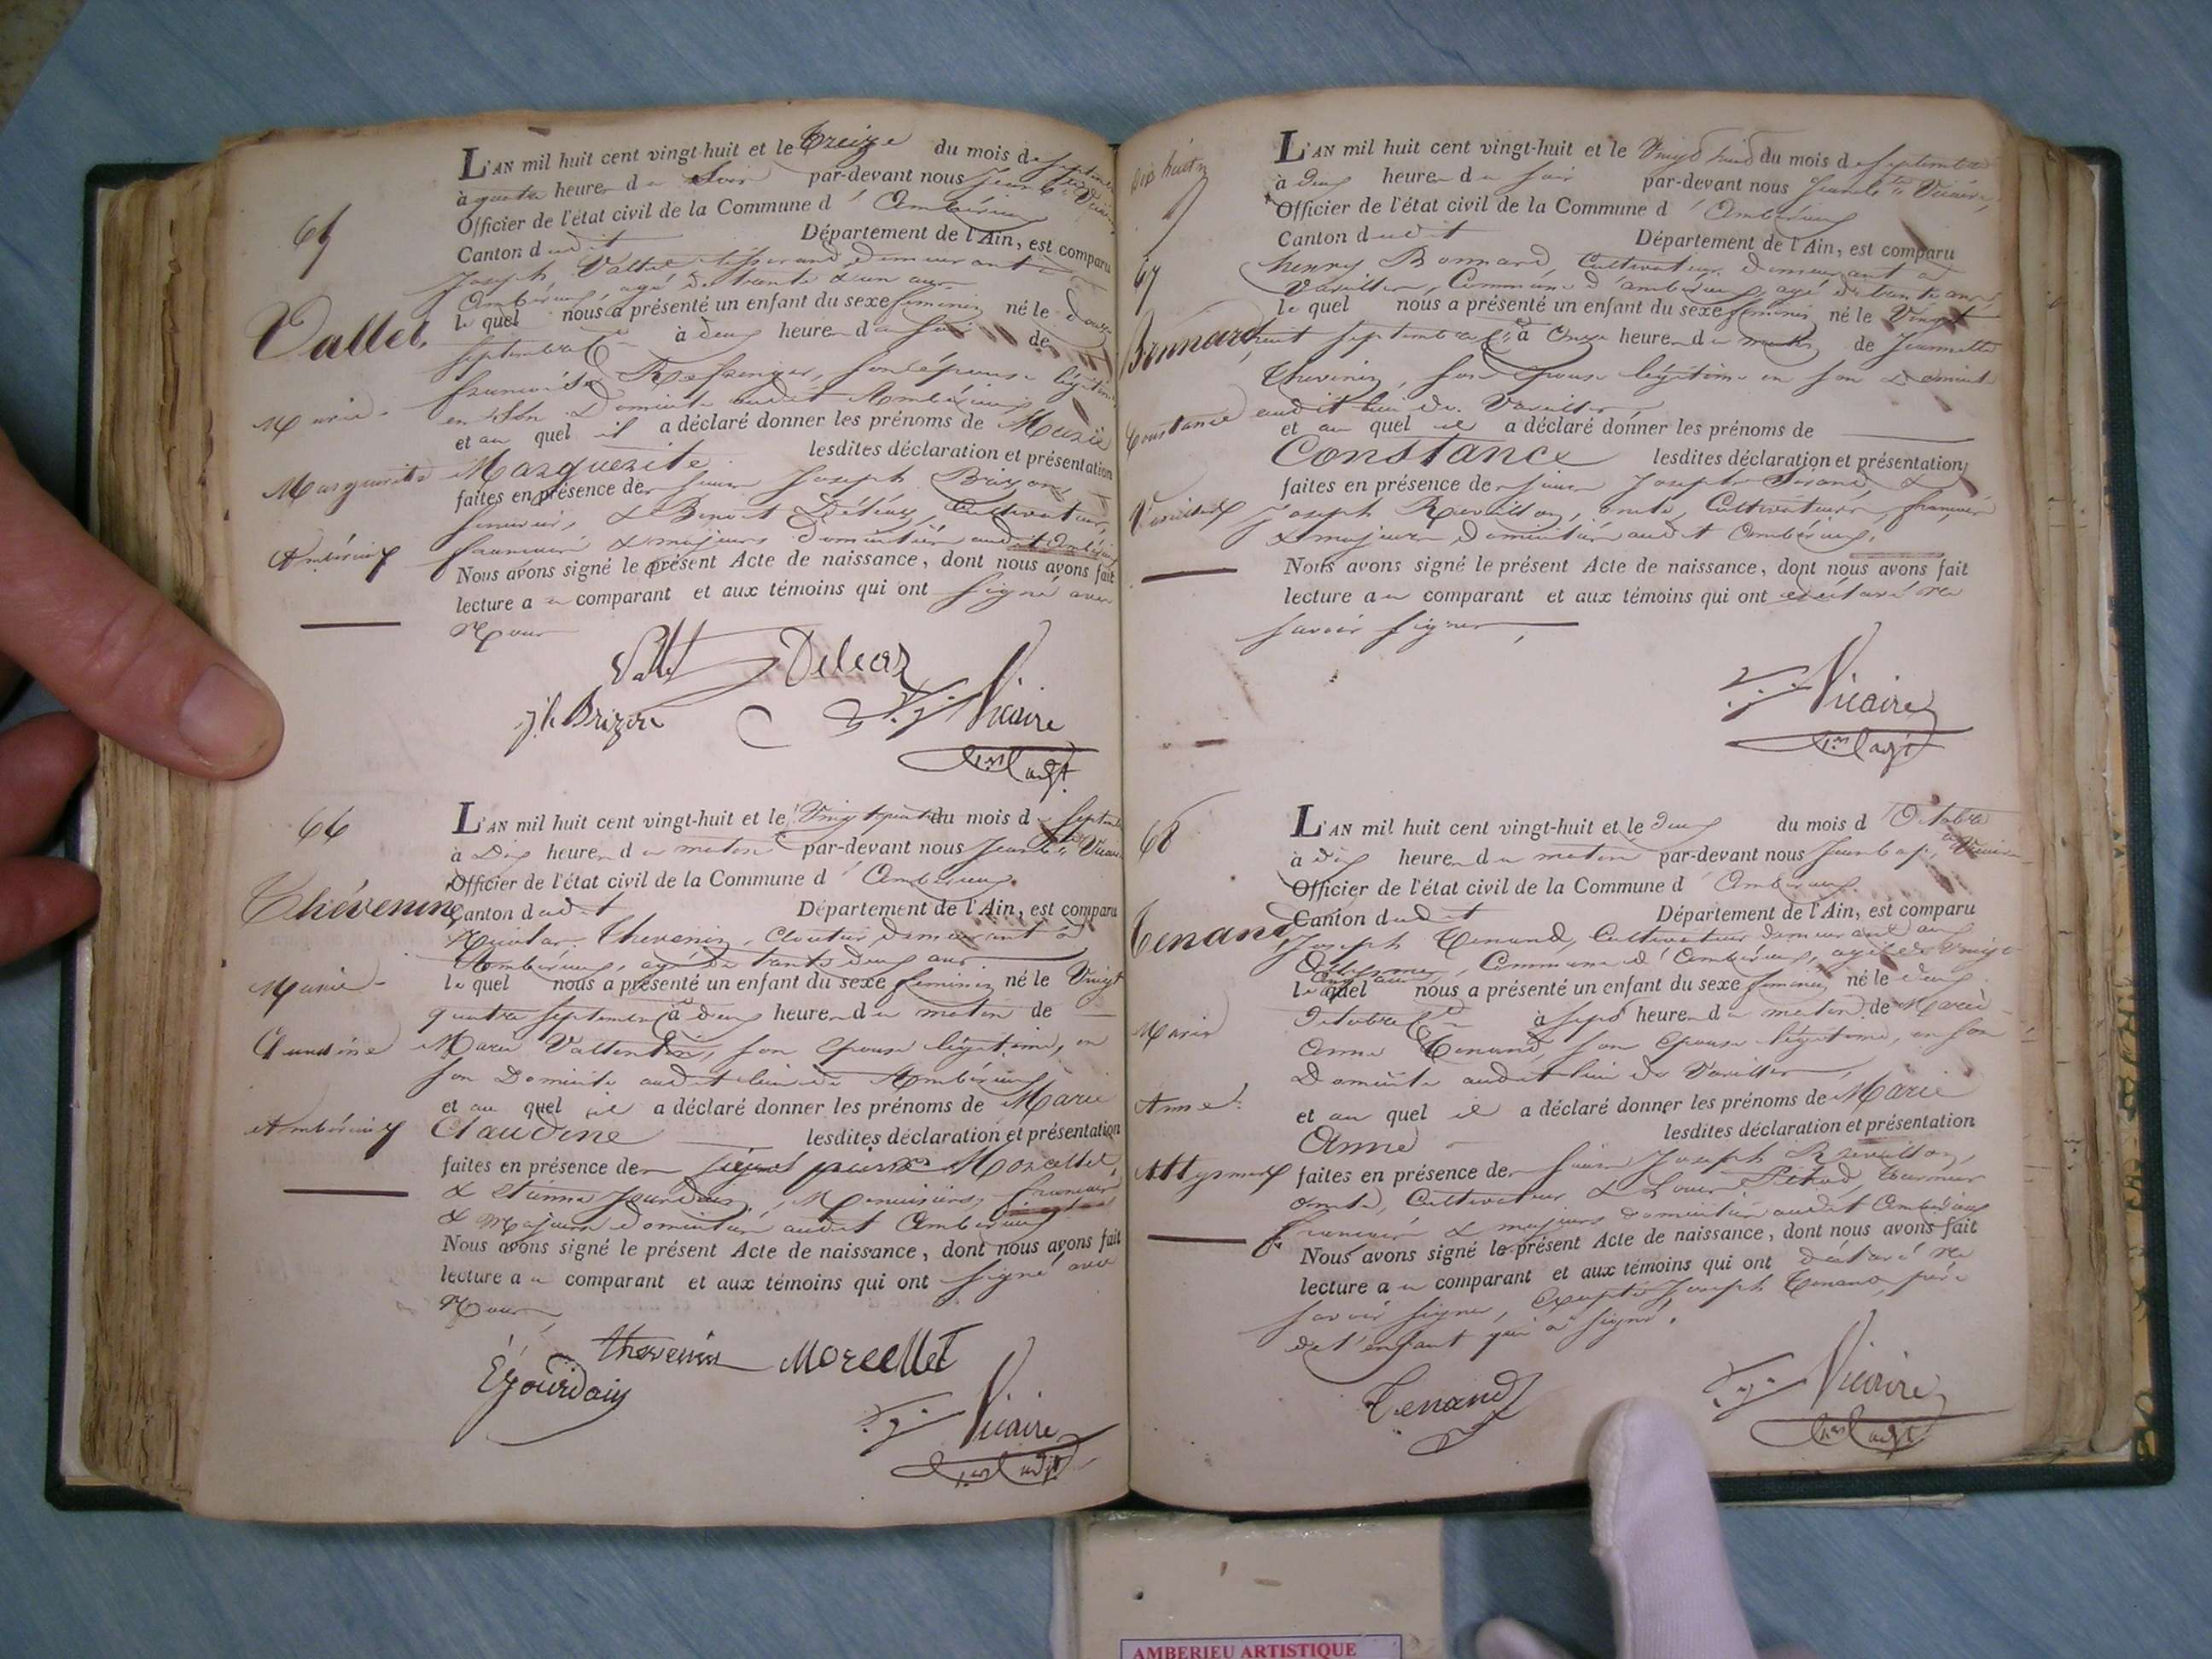 65
Vallet,
Marie
Marguerite
Ambérieux
L'AN mil huit cent vingt-huit et le treize du mois de septembre
à quatre heures du soir par-devant nous Jean Bte Vicaire
Officier de l'état civil de la Commune d' Ambérieux
Canton dudit Département de l'Ain, est comparu
Joseph Vallet tisserand demeurant à
Ambérieux, agé de trente d'un ans
le quel nous a présenté un enfant du sexe feminin né le douze
septembre à deux heures du soir de
françoise son épouse légitime
en son Domicile audit Ambérieux
et au quel il a déclaré donner les prénoms de Marie
Marguerite lesdites déclaration et présentation
faites en présence des sieurs Joseph Brizon,
& Benoit Cultivateur,
francais & majeurs domiciliés audit Ambérieux
Nous avons signé le présent Acte de naissance, dont nous avons fait
lecture au comparant et aux témoins qui ont signé avec
Nous
Vallet
jh Brizon
Vicaire
66
Thévenin,
Marie
Claudine
Ambérieux
L'AN mil huit cent vingt-huit et le Vingt quatre du mois de septembre
à Dix heures du matin par-devant nous Jean Bte Vicaire
Officier de l'état civil de la Commune d' Ambérieux
Canton dudit Département de l'Ain, est comparu
Nicolas Thevenin, Cloutier demeurant à
Ambérieux, agé de trente deux ans
le quel nous a présenté un enfant du sexe feminin né le Vingt
quatre septembre à deux heures du matin de
Marie Vallentin, son épouse légitime, en
son Domicile audit lieu de Ambérieux
et au quel il a déclaré donner les prénoms de Marie
Claudine lesdites déclaration et présentation
faites en présence des sieurs pierre Morcellet,
& Etienne Jourdain, Menuisiers, francais
& Majeurs domiciliés audit Ambérieux
Nous avons signé le présent Acte de naissance, dont nous avons fait
lecture au comparant et aux témoins qui ont signé avec
Nous
thevenin Morcellet
E Jourdain
Vicaire
dix huit
67
Bonnard
Constance
Vareilles
L'AN mil huit cent vingt-huit et le Vingt huit du mois de septembre
à deux heures du soir par-devant nous Jean Bte Vicaire,
Officier de l'état civil de la Commune d' Ambérieux
Canton dudit Département de l'Ain, est comparu
henry Bonnard, Cultivateur demeurant à
Vareilles, Commune d'ambérieux, agé de trente ans
le quel nous a présenté un enfant du sexe feminin né le Vingt
huit septembre à Onze heures du matin de Jeannette
thevenin, son épouse légitime en son Domicile
audit lieu de Vareilles
et au quel il a déclaré donner les prénoms de
Constance lesdites déclaration et présentation
faites en présence des sieurs Joseph &
Joseph Revillon, Cultivateurs, français
& majeurs, domiciliés audit Ambérieux,
Nous avons signé le présent Acte de naissance, dont nous avons fait
lecture au comparant et aux témoins qui ont déclaré ne
savoir signer,
Vicaire
68
Tenand,
Marie
Anne
L'AN mil huit cent vingt-huit et le deux du mois d'Octobre
à dix heures du matin par-devant nous Jean bap.te Vicaire
Officier de l'état civil de la Commune d' Ambérieux
Canton dudit Département de l'Ain, est comparu
Joseph Tenand, Cultivateur demeurant aux
Commune d'Ambérieux, agé de Vingt
le quel nous a présenté un enfant du sexe feminin né le deux
Octobre à sept heures du matin de Marie
Anne Tenand, son épouse légitime, en son
Domicile audit lieu de Vareilles
et au quel il a déclaré donner les prénoms de Marie
Anne lesdites déclaration et présentation
faites en présence des sieurs Joseph Revillon,
Cultivateur & Louis
francais & majeurs domiciliés audit Ambérieux
Nous avons signé le présent Acte de naissance, dont nous avons fait
lecture au comparant et aux témoins qui ont déclaré ne
savoir signer, Excepté Joseph Tenand, père
de l'enfant qui a signé.
Tenand
Vicaire
AMBERIEU ARTISTIQUE